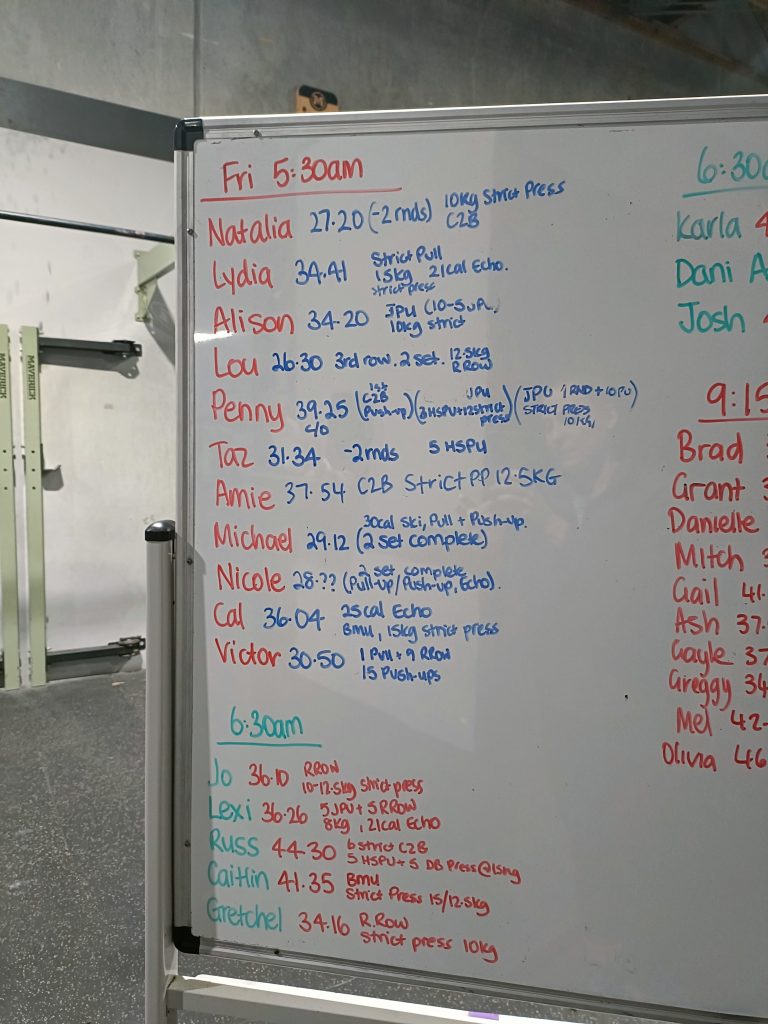 Fri 5:30am
Natalia 27.20 (-2 rnds) 10kg Strict Press
C2B
Lydia 34.41 Strict Pull
15kg 21cal Echo.
strict press
Alison 34.20 JPU (10-5
10kg strict
Lou 26.30 3rd row. 2 set. 12.5kg
R Row
Penny 39.25 (1st C2B Push-up) (JPU 3HSPU+12strict press) (JPU 1 RND + 10 PU)
STRICT PRESS
10kg
c/o
Taz 31.34 -2rnds 5 HSPU
Amie 37.54 C2B Strict P.P 12.5KG
Michael 29.12 30cal Ski, Pull + Push-up.
(2 set complete)
Nicole 28.?? 2 set complete
(Pull-up/Push-up, Echo).
Cal 36.04 25cal Echo
Bmu, 15kg strict press
Victor 30.50 1 Pull + 9 RRow
15 Push-ups
6:30am
Jo 36.10 RROW
10-12.5kg Strict press
Lexi 36.26 5JPU + 5 RROW
8kg, 21cal Echo
Russ 44.30 6 strict C2B
5 HSPU + 5 DB Press@15kg
Caitlin 41.35 Bmu
Strict Press 15/12.5kg
Gretchel 34.16 R.Row
Strict press 10kg
6:30a
Karla 4
Dani A
Josh 4
9:15
Brad 3
Grant 3
Danielle
Mitch 3
Gail 41.
Ash 37.
Gayle 37
Greggy 34
Mel 42.
Olivia 46
MAVERICK
MAVERICK